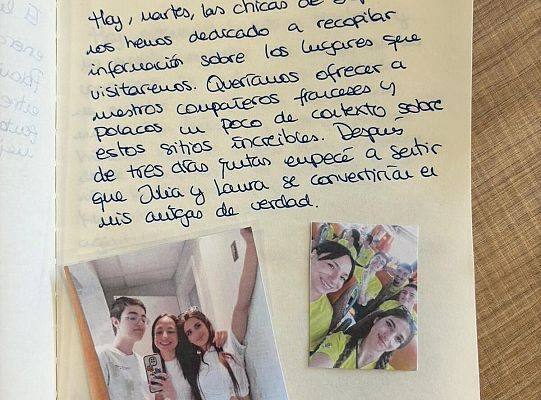 Hoy, martes, las chicas de
nos hemos dedicado a recopilar
información sobre los lugares que
visitaremos. Queríamos ofrecer a
nuestros compañeros franceses y
polacos un poco de contexto sobre
estos sitios increíbles. Después
de tres días juntas empecé a sentir
que Julia y Laura se convertirían en
mis amigas de verdad.